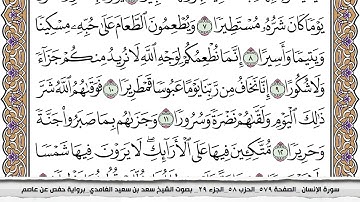 يَوْمًا كَانَ شَرُّهُۥ مُسْتَطِيرًا ٧ وَيُطْعِمُونَ ٱلطَّعَامَ عَلَىٰ حُبِّهِۦ مِسْكِينًا
وَيَتِيمًا وَأَسِيرًا ٨ إِنَّمَا نُطْعِمُكُمْ لِوَجْهِ ٱللَّهِ لَا نُرِيدُ مِنكُمْ جَزَآءً
وَلَا شُكُورًا ٩ إِنَّا نَخَافُ مِن رَّبِّنَا يَوْمًا عَبُوسًا قَمْطَرِيرًا ١٠ فَوَقَىٰهُمُ ٱللَّهُ شَرَّ
ذَٰلِكَ ٱلْيَوْمِ وَلَقَّىٰهُمْ نَضْرَةً وَسُرُورًا ١١ وَجَزَىٰهُم بِمَا صَبَرُوا۟ جَنَّةً
وَحَرِيرًا ١٢ مُّتَّكِـِٔينَ فِيهَا عَلَى ٱلْأَرَآئِكِ ۖ لَا يَرَوْنَ فِيهَا شَمْسًا
سورة الإنسان _الصفحة ٥٧٩_ الحزب ٥٨_ الجزء ٢٩ _ بصوت الشيخ سعد بن سعيد الغامدي_ برواية حفص عن عاصم